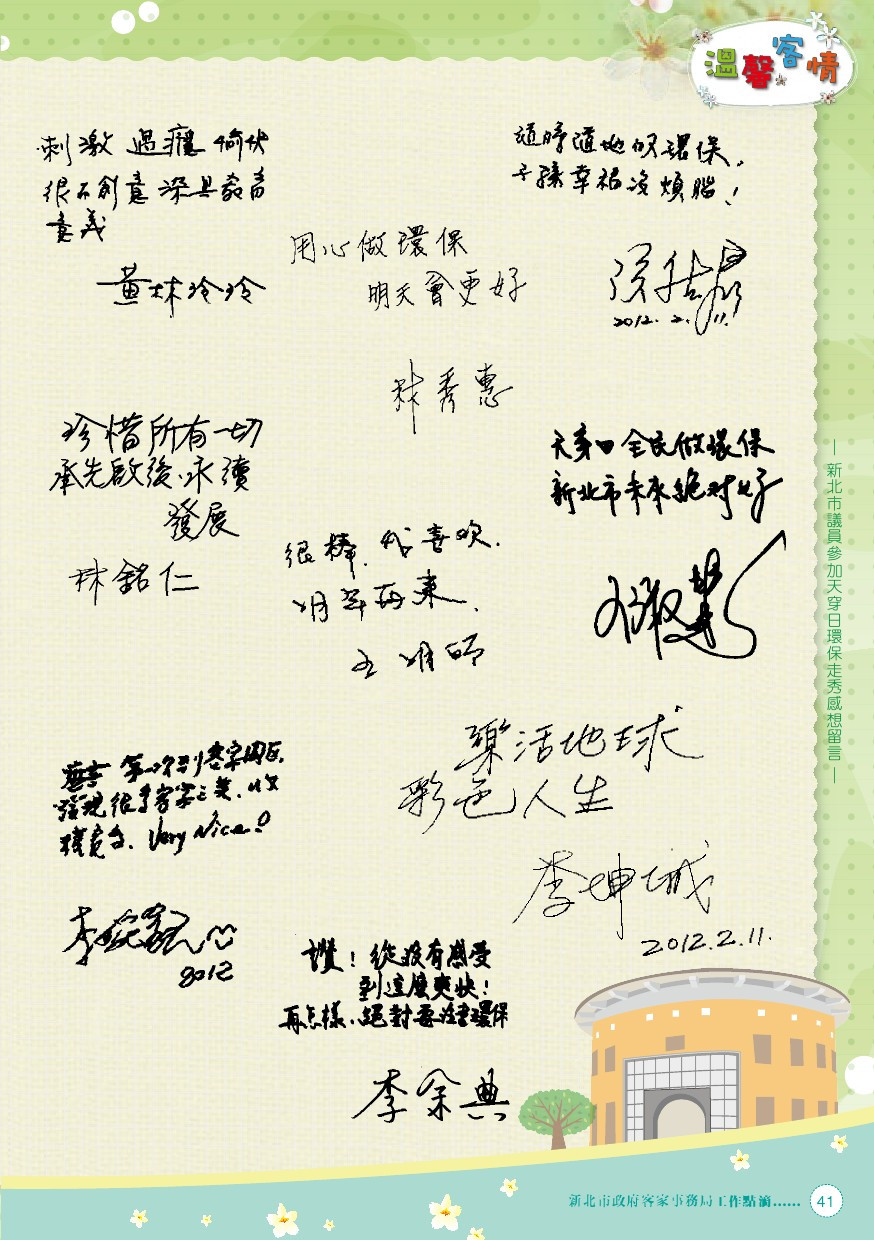 溫馨客情
刺激 過癮 愉快
很有創意 深具教育
意義
黃林玲玲
隨時隨地做環保,
子孫幸福沒煩腦!
2012. 2. 11.
用心做環保
明天會更好
林秀惠
珍惜所有一切
承先啟後、永續
發展
林銘仁
天穿日 全民做環保
新北市未來絕對好
很棒、我喜歡.
明年再來、
王明
第一次到客家園區,
發現很多客家之美、收
穫良多、Very Nice!
2012
樂活地球
彩色人生
李坤城
2012.2.11.
讚!從沒有感受
到這麼爽快!
再怎樣、絕對要注重環保
李余典
—新北市議員參加天穿日環保走秀感想留言—
新北市政府客家事務局工作點滴…… 41